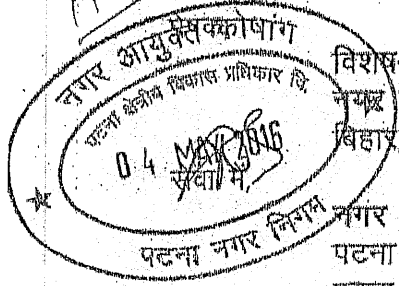 नगर आयुक्त कोषांग
पटना क्षेत्रीय विकास प्राधिकार वि.
0 4 MAR 2016
पटना नगर निगम
विशेष
नगर
बिहार
सेवा में,
नगर
पटना